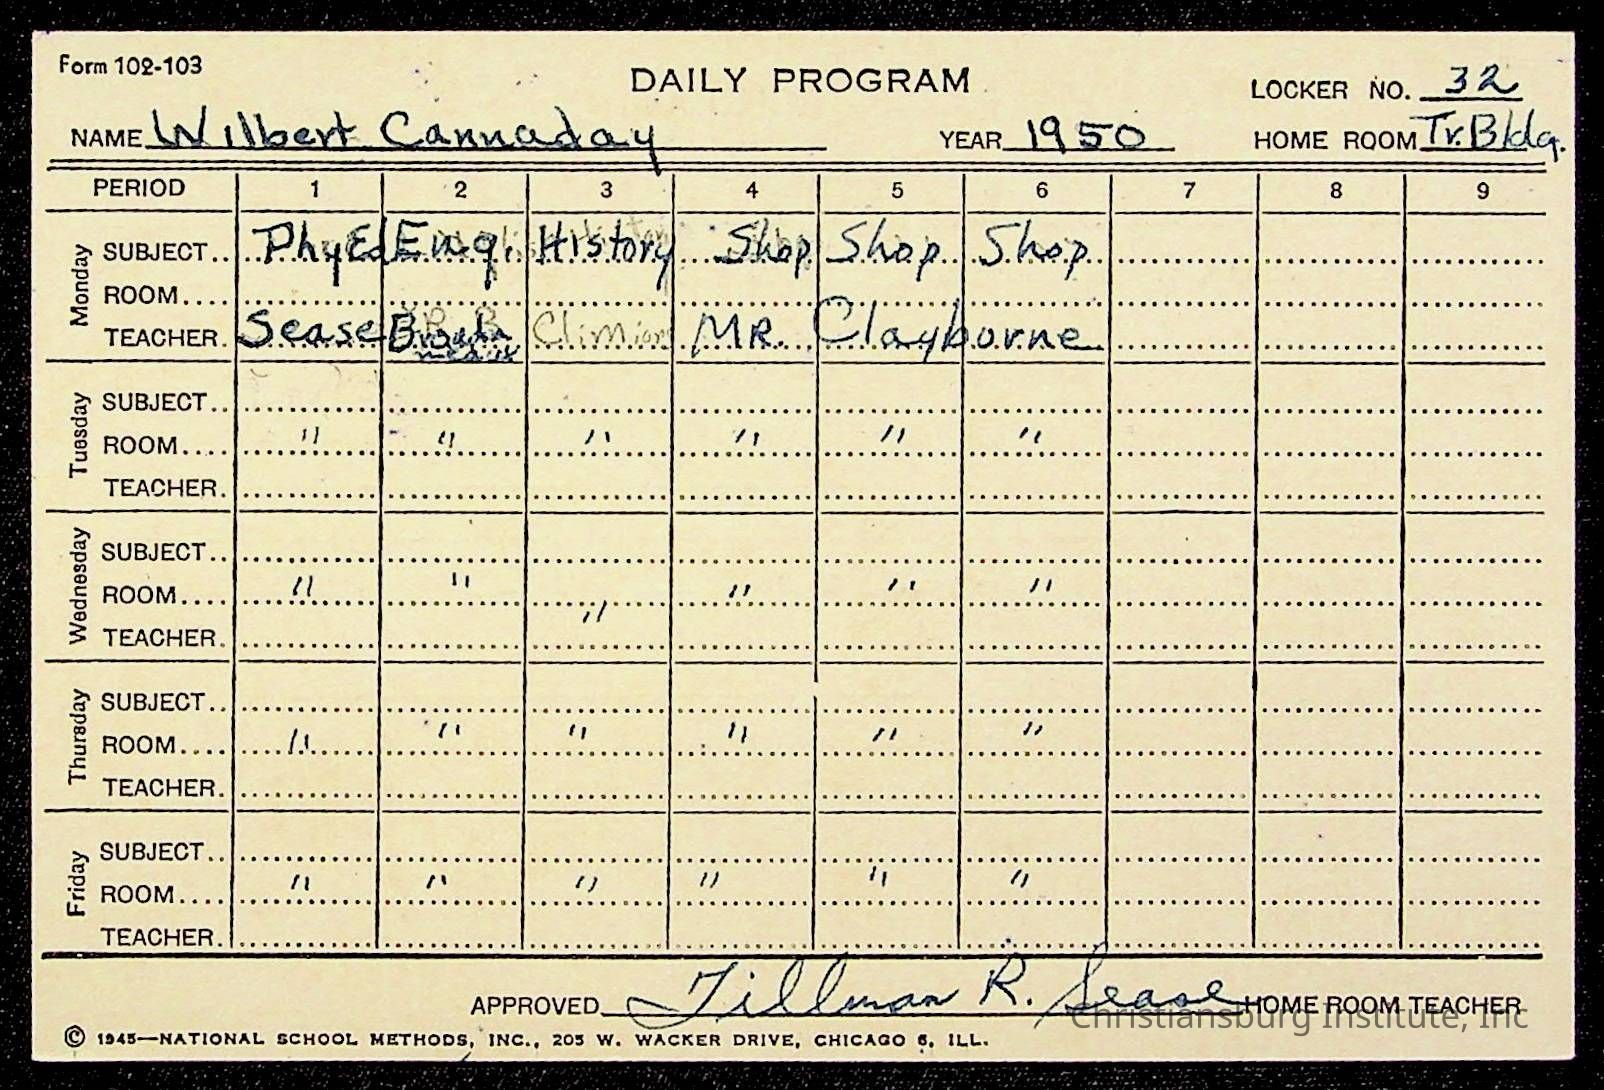 Form 102-103
DAILY PROGRAM
LOCKER NO. 32
NAME Wilbert Cannaday YEAR 1950 HOME ROOM Tr. Bldg.
PERIOD 1 2 3 4 5 6 7 8 9
Monday
SUBJECT.. Phy Ed Eng. History Shop Shop Shop
ROOM....
TEACHER. Sease MR. Clayborne
Tuesday
SUBJECT..
ROOM.... " " " " " "
TEACHER.
Wednesday
SUBJECT..
ROOM.... " " " " " "
TEACHER.
Thursday
SUBJECT..
ROOM.... " " " " " "
TEACHER.
Friday
SUBJECT..
ROOM.... " " " " " "
TEACHER.
APPROVED Tillman R. Sease HOME ROOM TEACHER
Christiansburg Institute, Inc
© 1945—NATIONAL SCHOOL METHODS, INC., 205 W. WACKER DRIVE, CHICAGO 6, ILL.